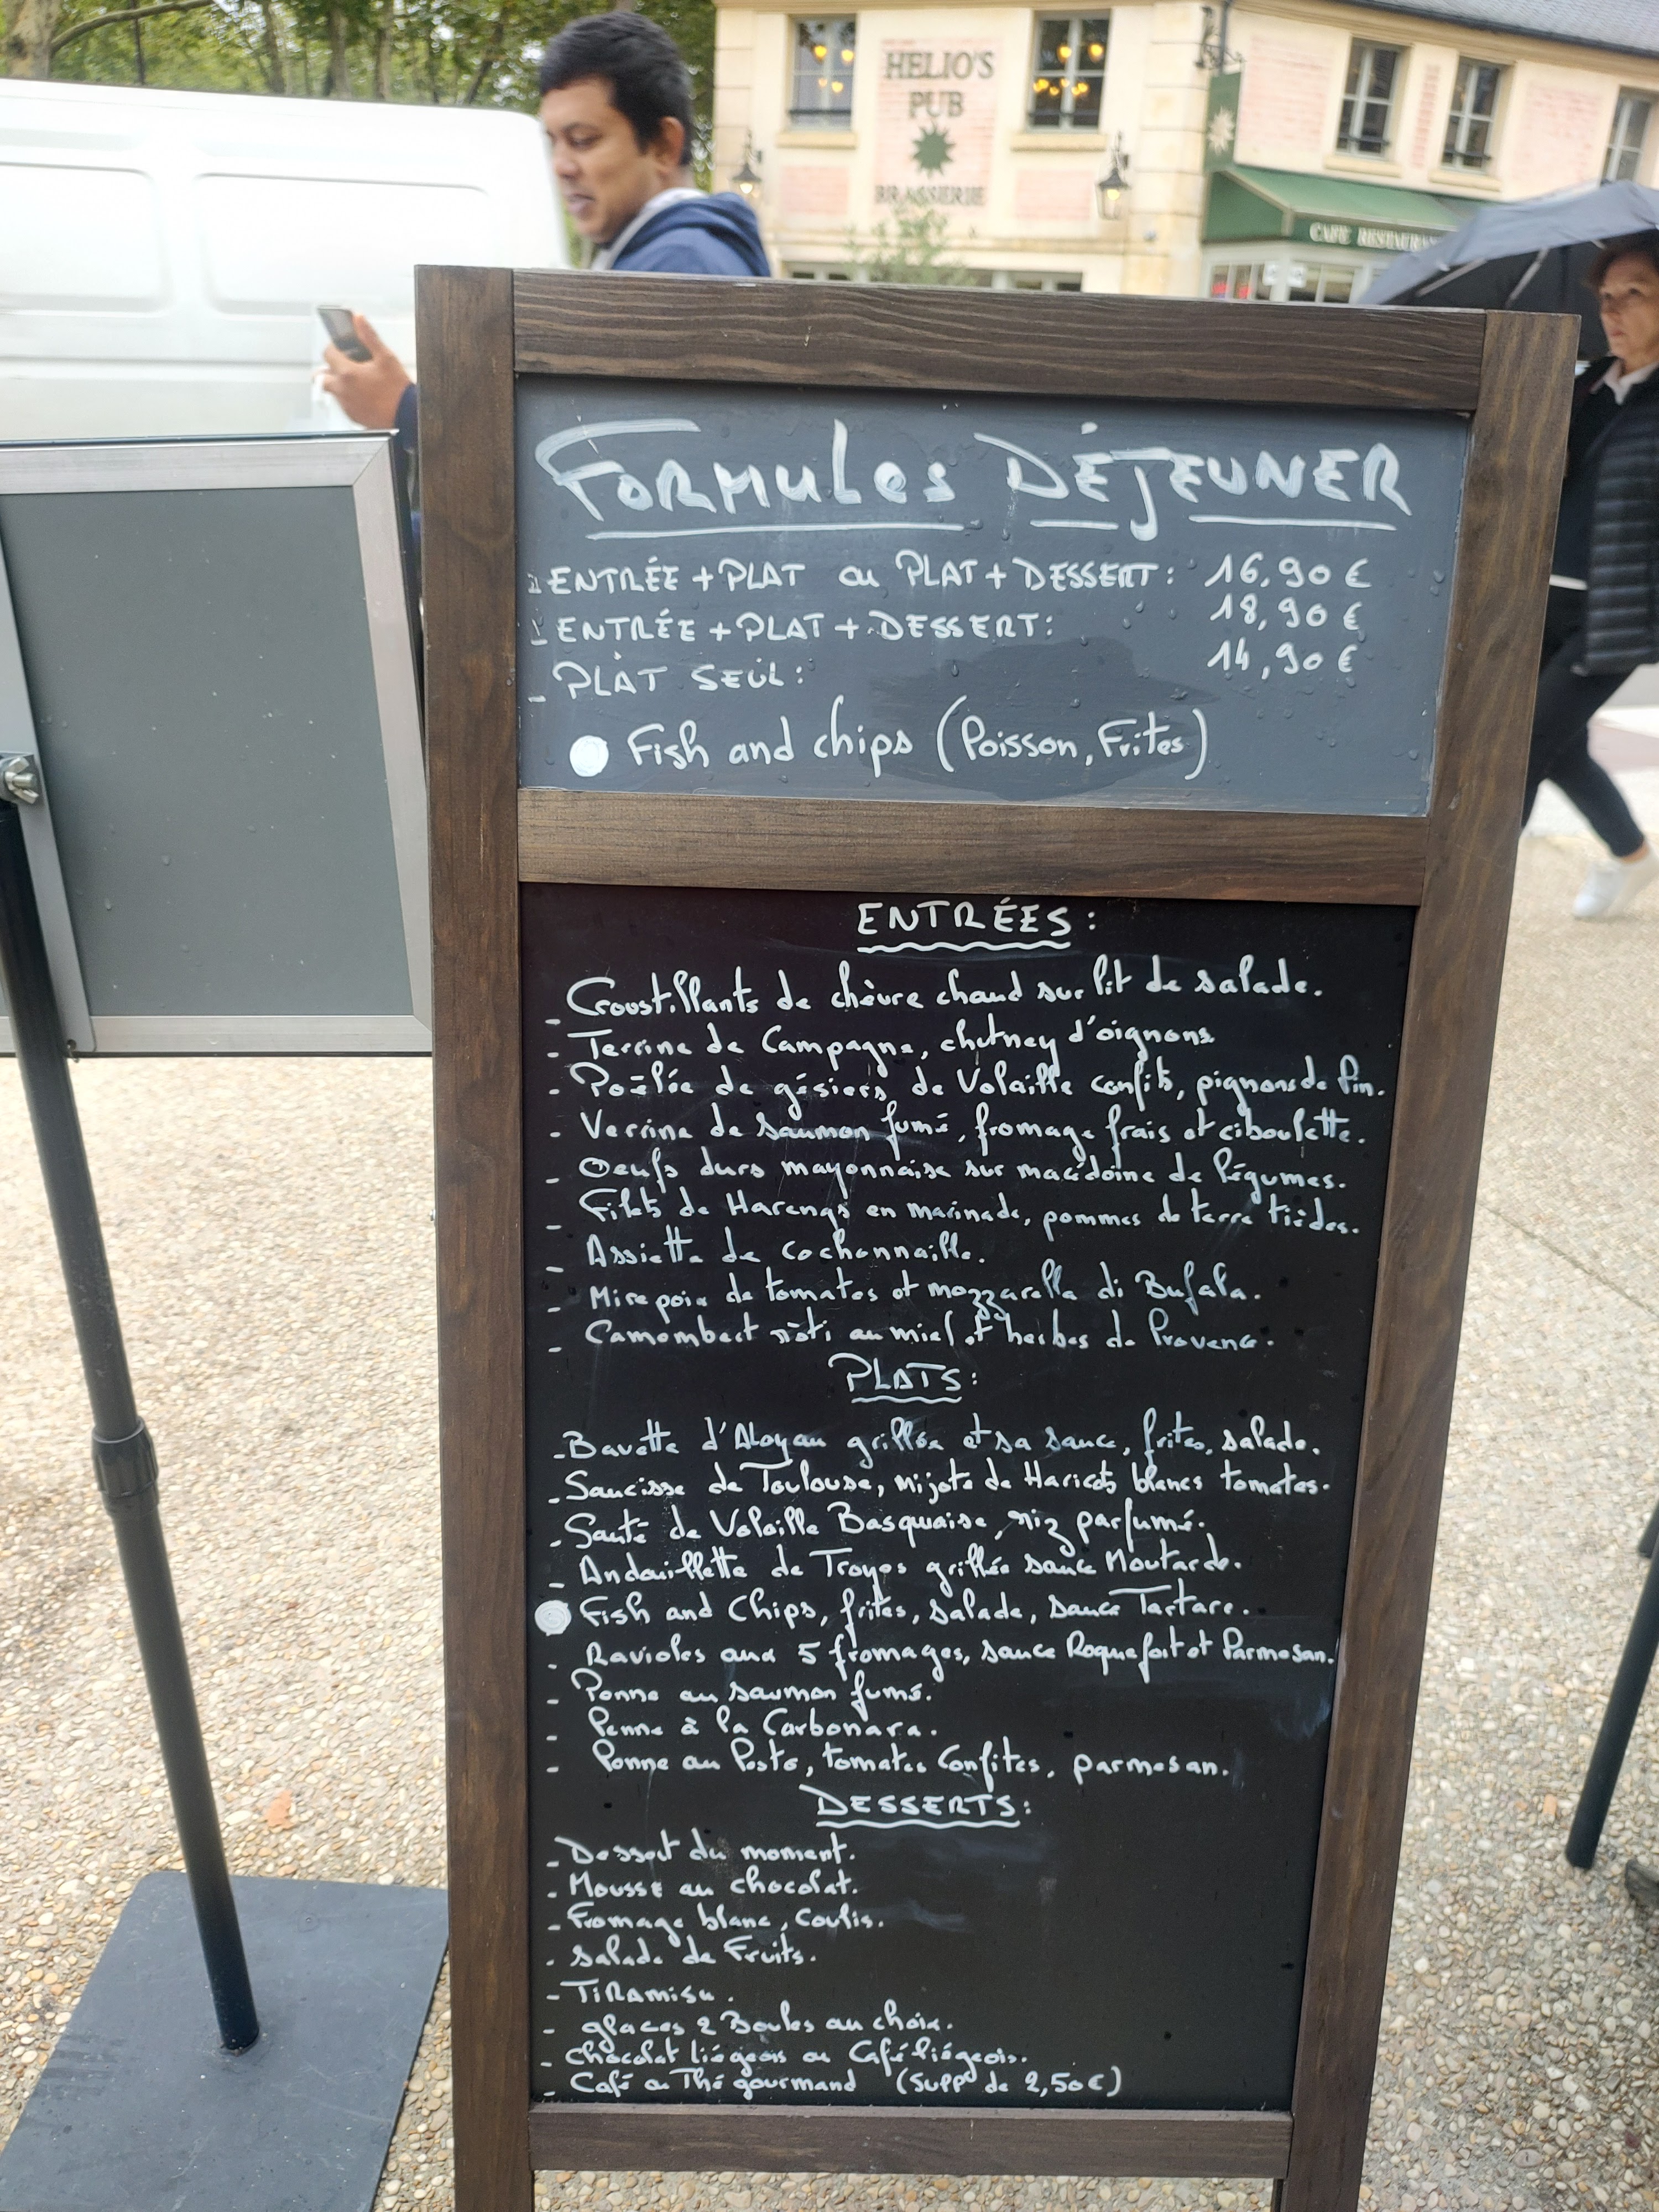 HELIO'S
PUB
BRASSERIE
CAFE RESTAURANT
FORMULES DÉJEUNER
- ENTRÉE + PLAT ou PLAT + DESSERT : 16,90 €
- ENTRÉE + PLAT + DESSERT : 18,90 €
- PLAT SEUL : 14,90 €
Fish and chips (Poisson, Frites)
ENTRÉES :
- Croustillants de chèvre chaud sur lit de salade.
- Terrine de Campagne, chutney d'oignons
- Poêlée de gésiers de Volaille confits, pignons de Pin.
- Verrine de saumon fumé, fromage frais et ciboulette.
- Oeufs durs mayonnaise sur macédoine de légumes.
- Filets de Harengs en marinade, pommes de terre tièdes.
- Assiette de cochonnaille.
- Mirepoix de tomates et mozzarella di Bufala.
- Camembert rôti au miel et herbes de Provence.
PLATS :
- Bavette d'Aloyau grillée et sa sauce, frites, salade.
- Saucisse de Toulouse, mijoté de Haricots blancs tomates.
- Sauté de Volaille Basquaise, riz parfumé.
- Andouillette de Troyes grillée sauce Moutarde.
Fish and Chips, frites, salade, sauce Tartare.
- Ravioles aux 5 fromages, sauce Roquefort et Parmesan.
- Penne au saumon fumé.
- Penne à la Carbonara.
- Penne au Pesto, tomates Confites, parmesan.
DESSERTS :
- Dessert du moment.
- Mousse au chocolat.
- Fromage blanc, Coulis.
- Salade de Fruits.
- TiRamisu.
- glaces 2 Boules au choix.
- Chocolat liégeois ou Café liégeois.
- Café ou Thé gourmand (Suppt de 2,50€)